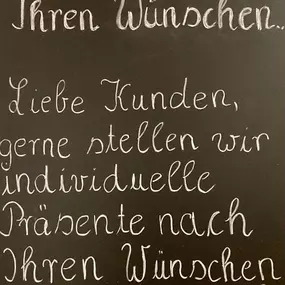 Ihren Wünschen..
Liebe Kunden,
gerne stellen wir
individuelle
Präsente nach
Ihren Wünschen